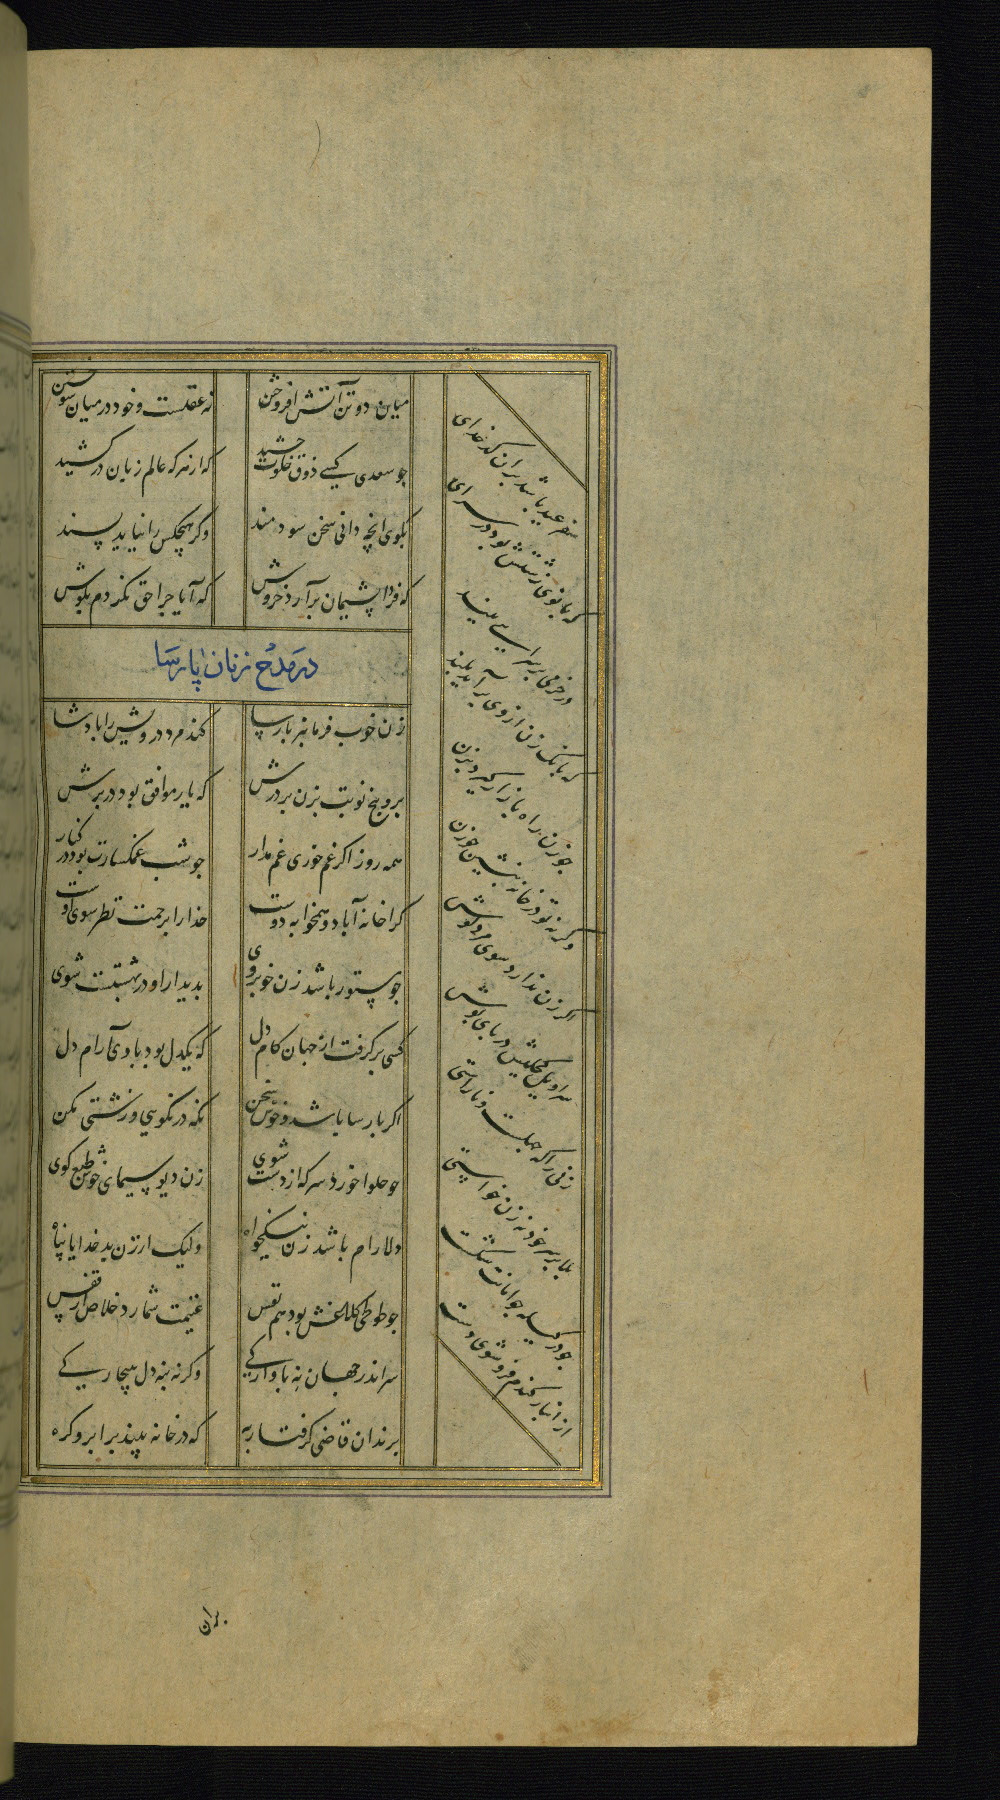 میان دو تن آتش افروختن نه عقلست و خود در میان سوختن
جو سعدی کسی ذوق خلوت چشید که از هر که عالم زبان در کشید
بکوی انچه دانی سخن سودمند وکر هیچکس را نیاید پسند
که فردا پشیمان برآرد خروش که آیا چرا حق نکردم بکوش
در مدح زنان پارسا
زن خوب فرمانبر پارسا کند مرد درویش را پادشا
برو پنج نوبت بزن بر درش که یار موافق بود در برش
همه روز اکر غم خوری غم مدار جو شب غمکسارت بود در کنار
کرا خانه آباد و همخوابه دوست خدا را برحمت نظر سوی اوست
جو مستور باشد زن خوبروی بدیدار او در بهشتست شوی
کسی برکرفت از جهان کام دل که یکدل بود با وی آرام دل
اکر پارسا باشد و خوش سخن نکه در نکویی و زشتی مکن
جو حلوا خورد سرکه از دست شوی زن دیو سیمای خوش طبع کوی
دلارام باشد زن نیکخواه ولیک از زن بد خدایا پناه
جو طوطی کلاغش بود هم نفس غنیمت شمارد خلاص از قفس
سر اندر جهان نه باوارکی وکرنه بنه دل ببیچارکی
بزندان قاضی کرفتار به که در خانه بیند بر ابرو کره
سفر عید باشد بران کدخدای
که بانوی زشتش بود در سرای
در خرمی بر سرایی ببند
که بانک زن از وی برآید بلند
جو زن راه بازار کیرد بزن
وکرنه تو در خانه بنشین جو زن
اکر زن ندارد سوی مرد کوش
سراویل کحلیش در مرد پوش
زنی را که جهلست و ناراستی
بلا بر سر خود نه زن خواستی
جو در کیله جو امانت شکست
از انبار کندم فرو شوی دست
بران